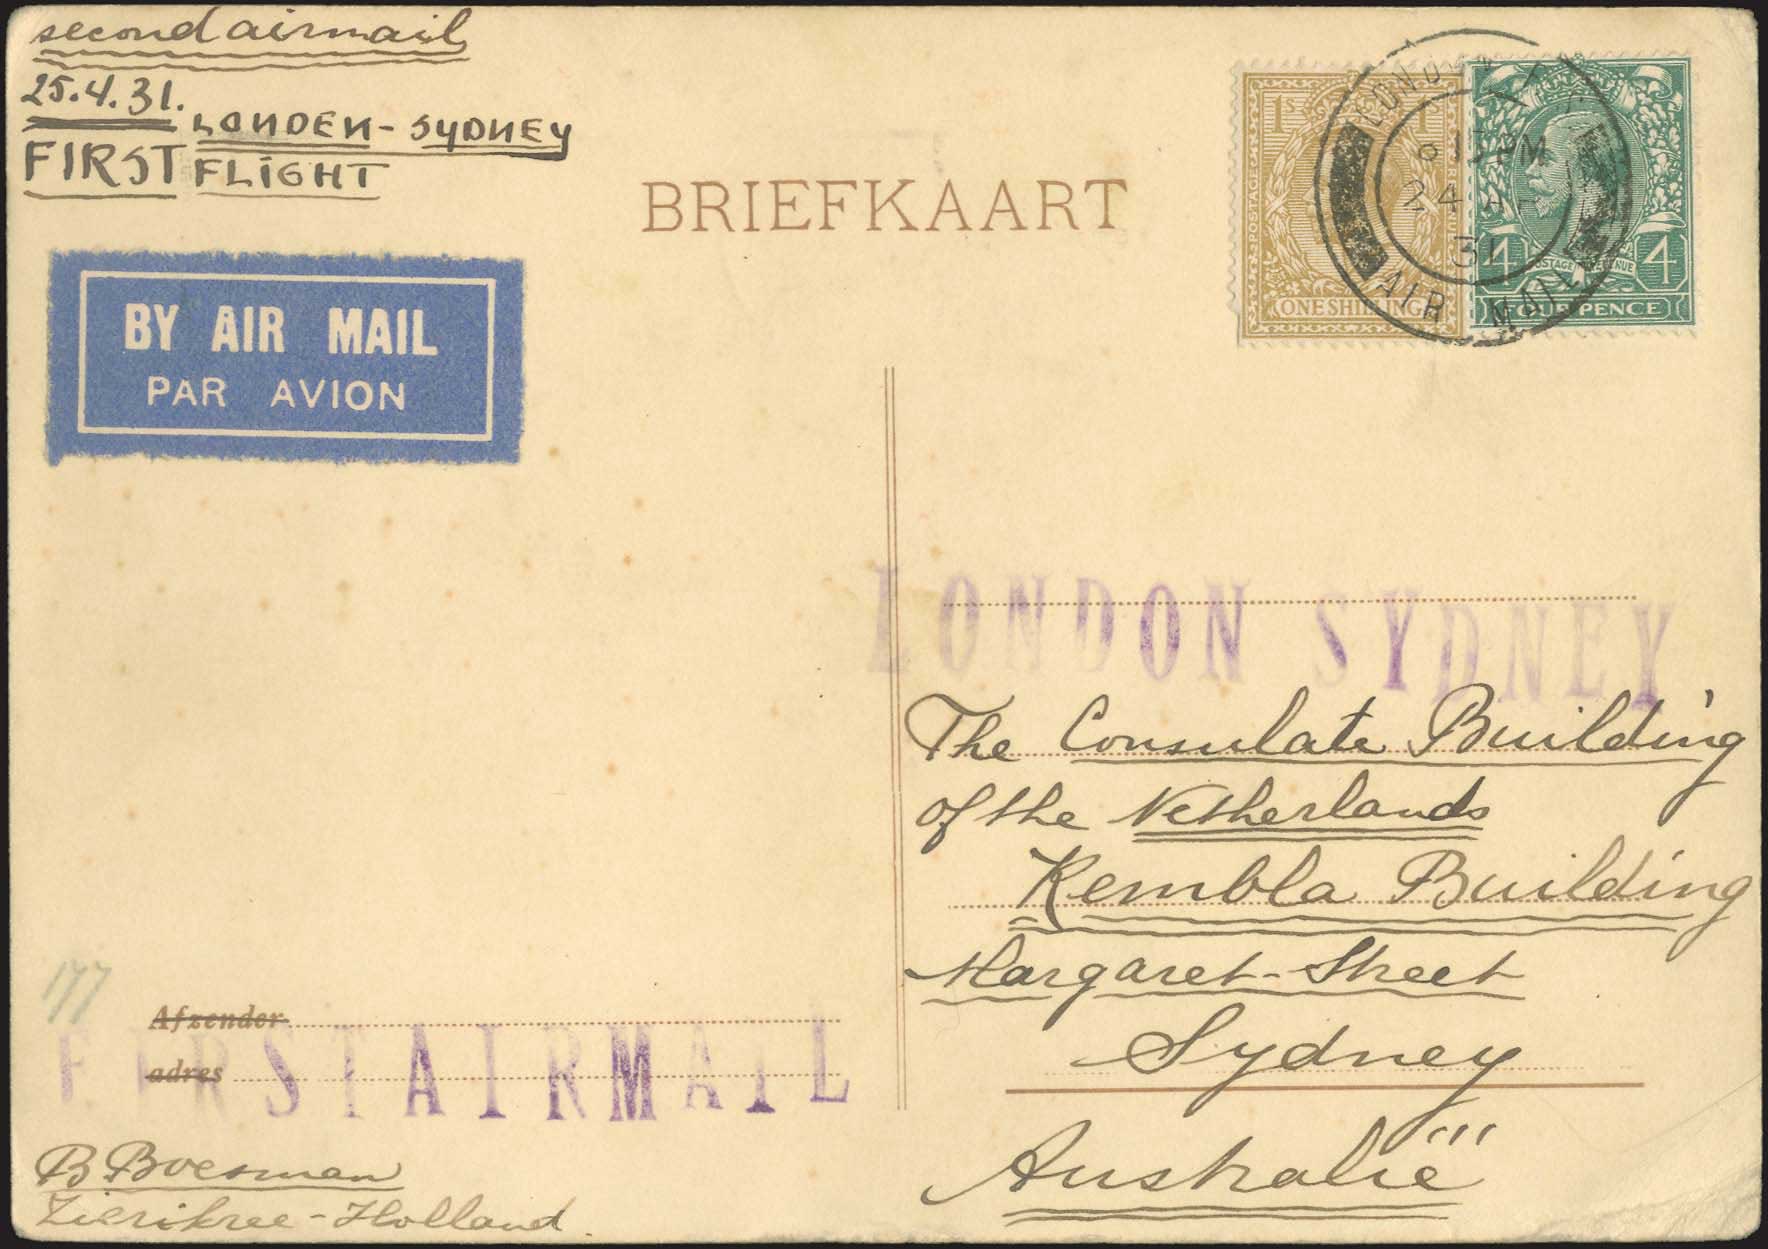 second airmail
25.4.31. LONDEN - SYDNEY
FIRST FLIGHT
BRIEFKAART
1s 1
POSTAGE
ONE SHILLING
4 4
POSTAGE REVENUE
FOUR PENCE
LONDON
6 15 PM
24 AP
31
AIR MAIL
BY AIR MAIL
PAR AVION
LONDON SYDNEY
The Consulate Building
of the Netherlands
Kembla Building
Margaret-Street
Sydney
Australië
177
Afzender
adres
FIRST AIRMAIL
B Boesman
Zierikzee - Holland